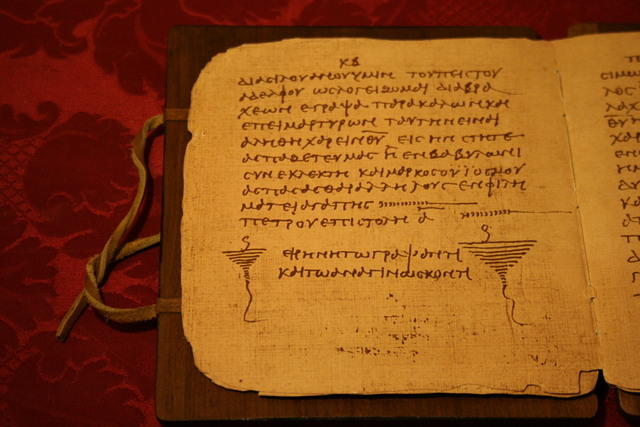 ΔΙΑ ϹΙΛΟΥΑΝΟΥ ΥΜΙΝ ΤΟΥ ΠΙϹΤΟΥ
ΑΔΕΛΦΟΥ ΩϹ ΛΟΓΕΙΖΟΜΑΙ ΔΙΑ ΒΡΑ
ΧΕΩΝ ΕΓΡΑΨΑ ΠΑΡΑΚΑΛΩΝ ΚΑΙ
ΕΠΕΙΜΑΡΤΥΡΩΝ ΤΑΥΤΗΝ ΕΙΝΑΙ
ΑΛΗΘΗ ΧΑΡΕΙΝ Θ̅Υ̅ ΕΙϹ ΗΝ ϹΤΗΤΕ
ΑϹΠΑΖΕΤΕ ΥΜΑϹ Η ΕΝ ΒΑΒΥΛΩΝΙ
ϹΥΝΕΚΛΕΚΤΗ ΚΑΙ ΜΑΡΚΟϹ Ο ΥΙΟϹ ΜΟΥ
ΑϹΠΑϹΑϹΘΑΙ ΑΛΛΗΛΟΥϹ ΕΝ ΦΙΛΗ
ΜΑΤΕΙ ΑΓΑΠΗϹ
ΠΕΤΡΟΥ ΕΠΙϹΤΟΛΗ Α̅
ΕΙΡΗΝΗ ΤΩ ΓΡΑΨΑΝΤΙ
ΚΑΙ ΤΩ ΑΝΑΓΙΝΩϹΚΟΝΤΙ